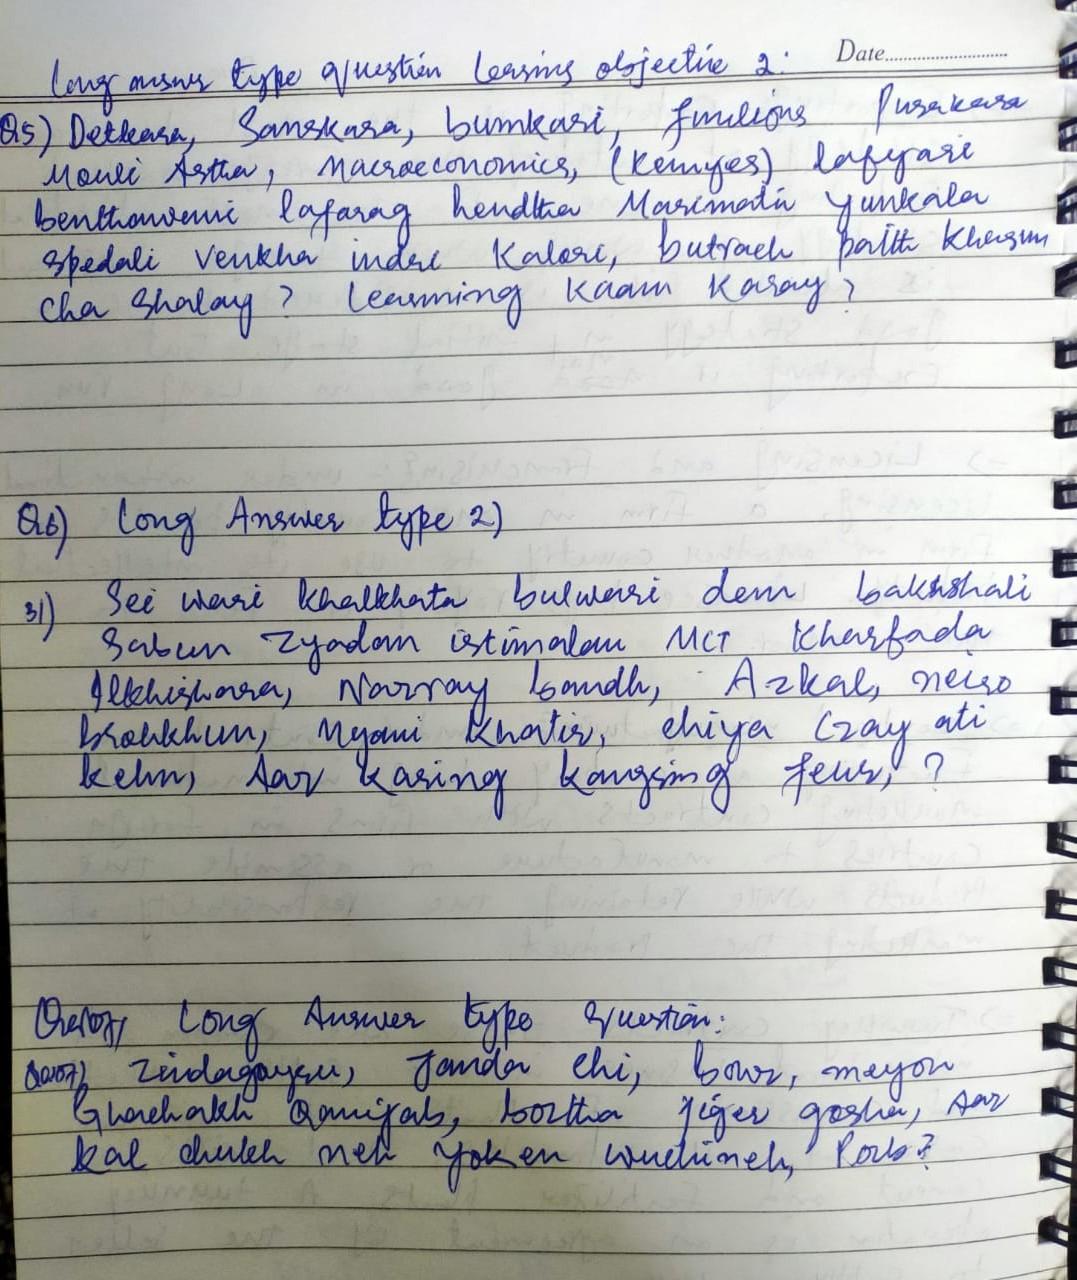 Long answer type question learning objective 2: Date
Q5) Detkara, Sanskara, bumkari, functions Purakara
Mouli Astha, Macroeconomics, (Kemyes) lafyari
benthamemi lafarag hendtha Marimati yunkala
spedali venkha indri Kalori, butraeh paith Khersun
cha Shalay? Learning Kaam Karay?
Q6) Long Answer type 2)
31) Sei wari Khalkhata bulwari dem bakhshali
Sabun Zyadan istimalau MCT Kharfada
Ilkhishara, Narray bandh, Azkal, neiro
brohkhun, Myani Khatir, chiya Czay ati
kehn, Aar Karing Kangsing feur, ?
Long Answer type question:
Zindagayeu, Janda chi, bowr, meyon
Ghachakh Qanijab, bortha jiger gosha, Aar
kal chukh neh yoken wuchineh, Rob?